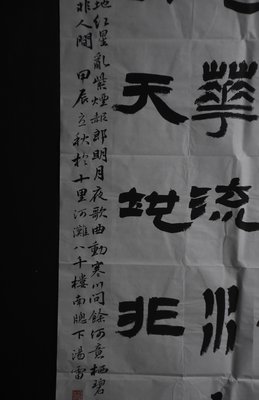 華流
天地非
地紅星亂紫煙赧郎明月夜歌曲動寒川問餘何意棲碧
非人間 甲辰立秋於十里河灘八千樓南牕下湯雷